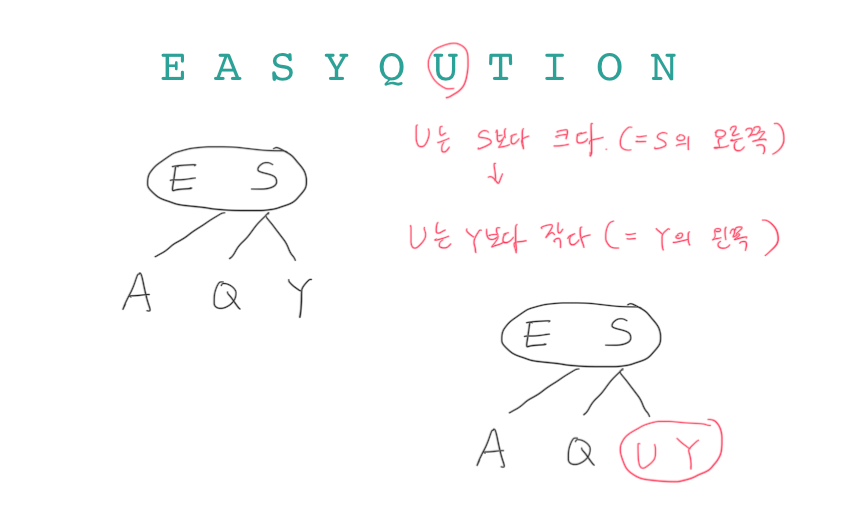 E A S Y Q U T I O N
U는 S보다 크다. (=S의 오른쪽)
↓
U는 Y보다 작다 (= Y의 왼쪽)
E S
A Q Y
E S
A Q U Y